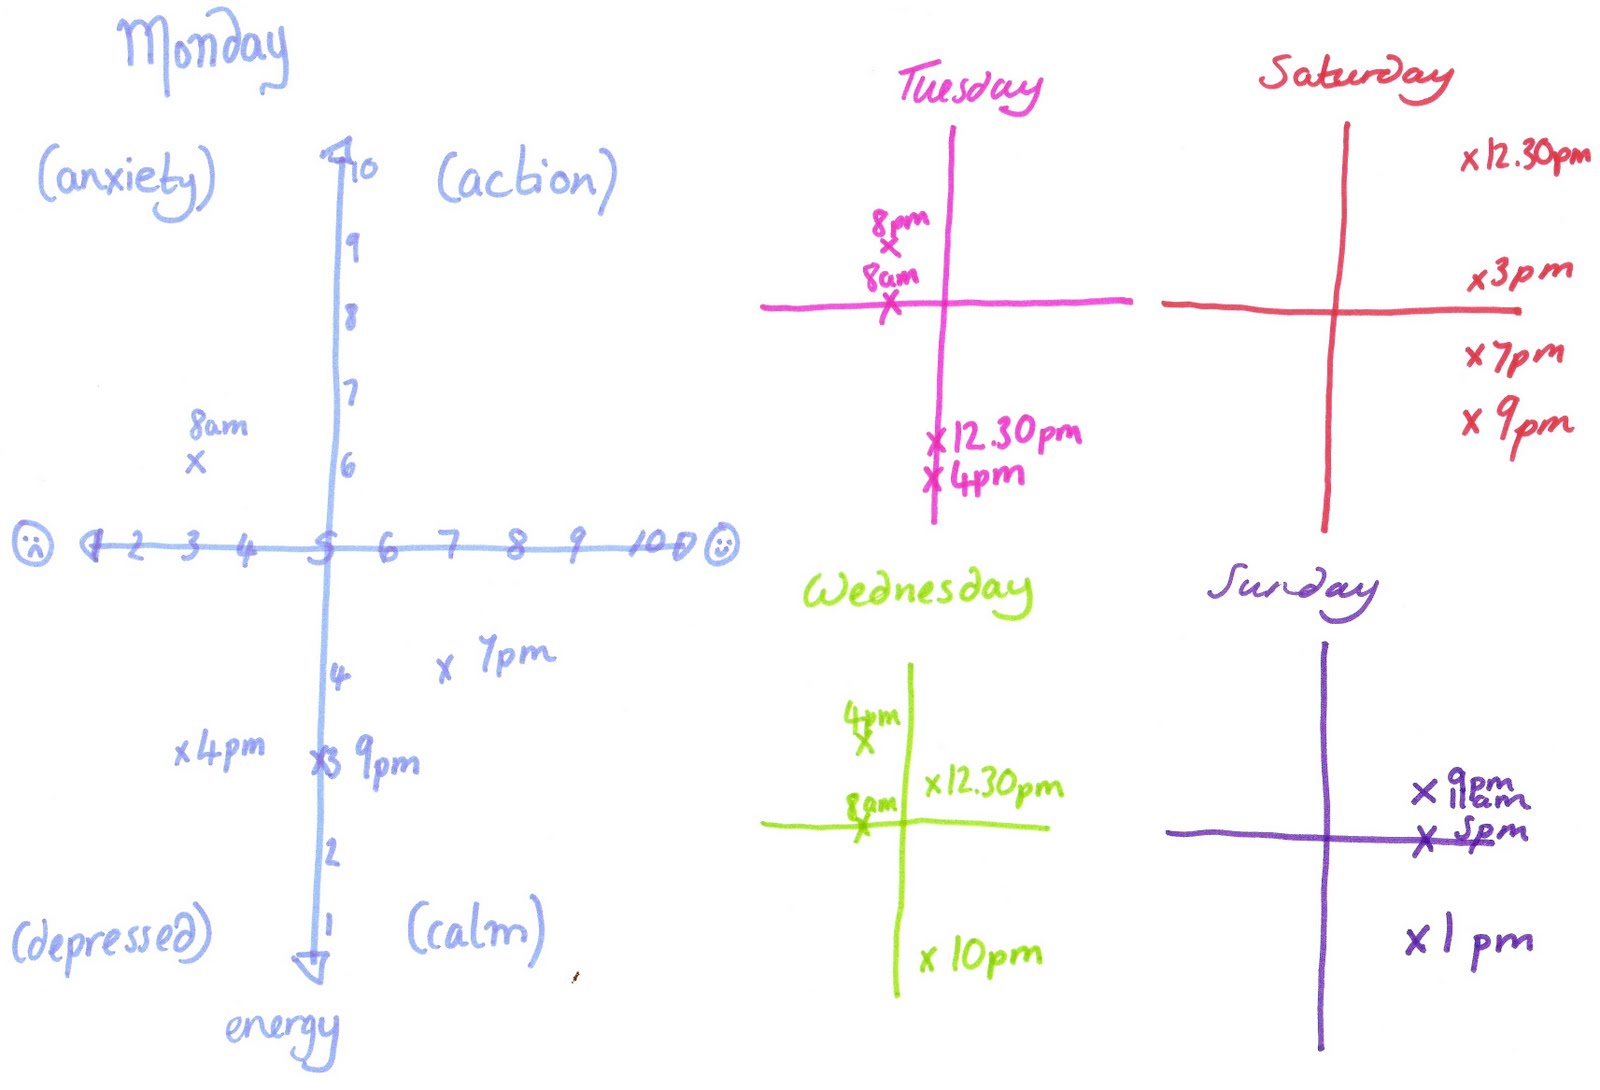 Monday
(anxiety)
(action)
10
9
8
7
8am
x
6
1 2 3 4 5 6 7 8 9 10
x 7pm
4
x 4pm
x 3 9pm
2
1
(depressed)
(calm)
energy
Tuesday
8pm
x
8am
x
x 12.30pm
x 4pm
Saturday
x 12.30pm
x 3pm
x 7pm
x 9pm
Wednesday
4pm
x
x 12.30pm
8am
x
x 10pm
Sunday
x 9pm
11am
x 5pm
x 1pm